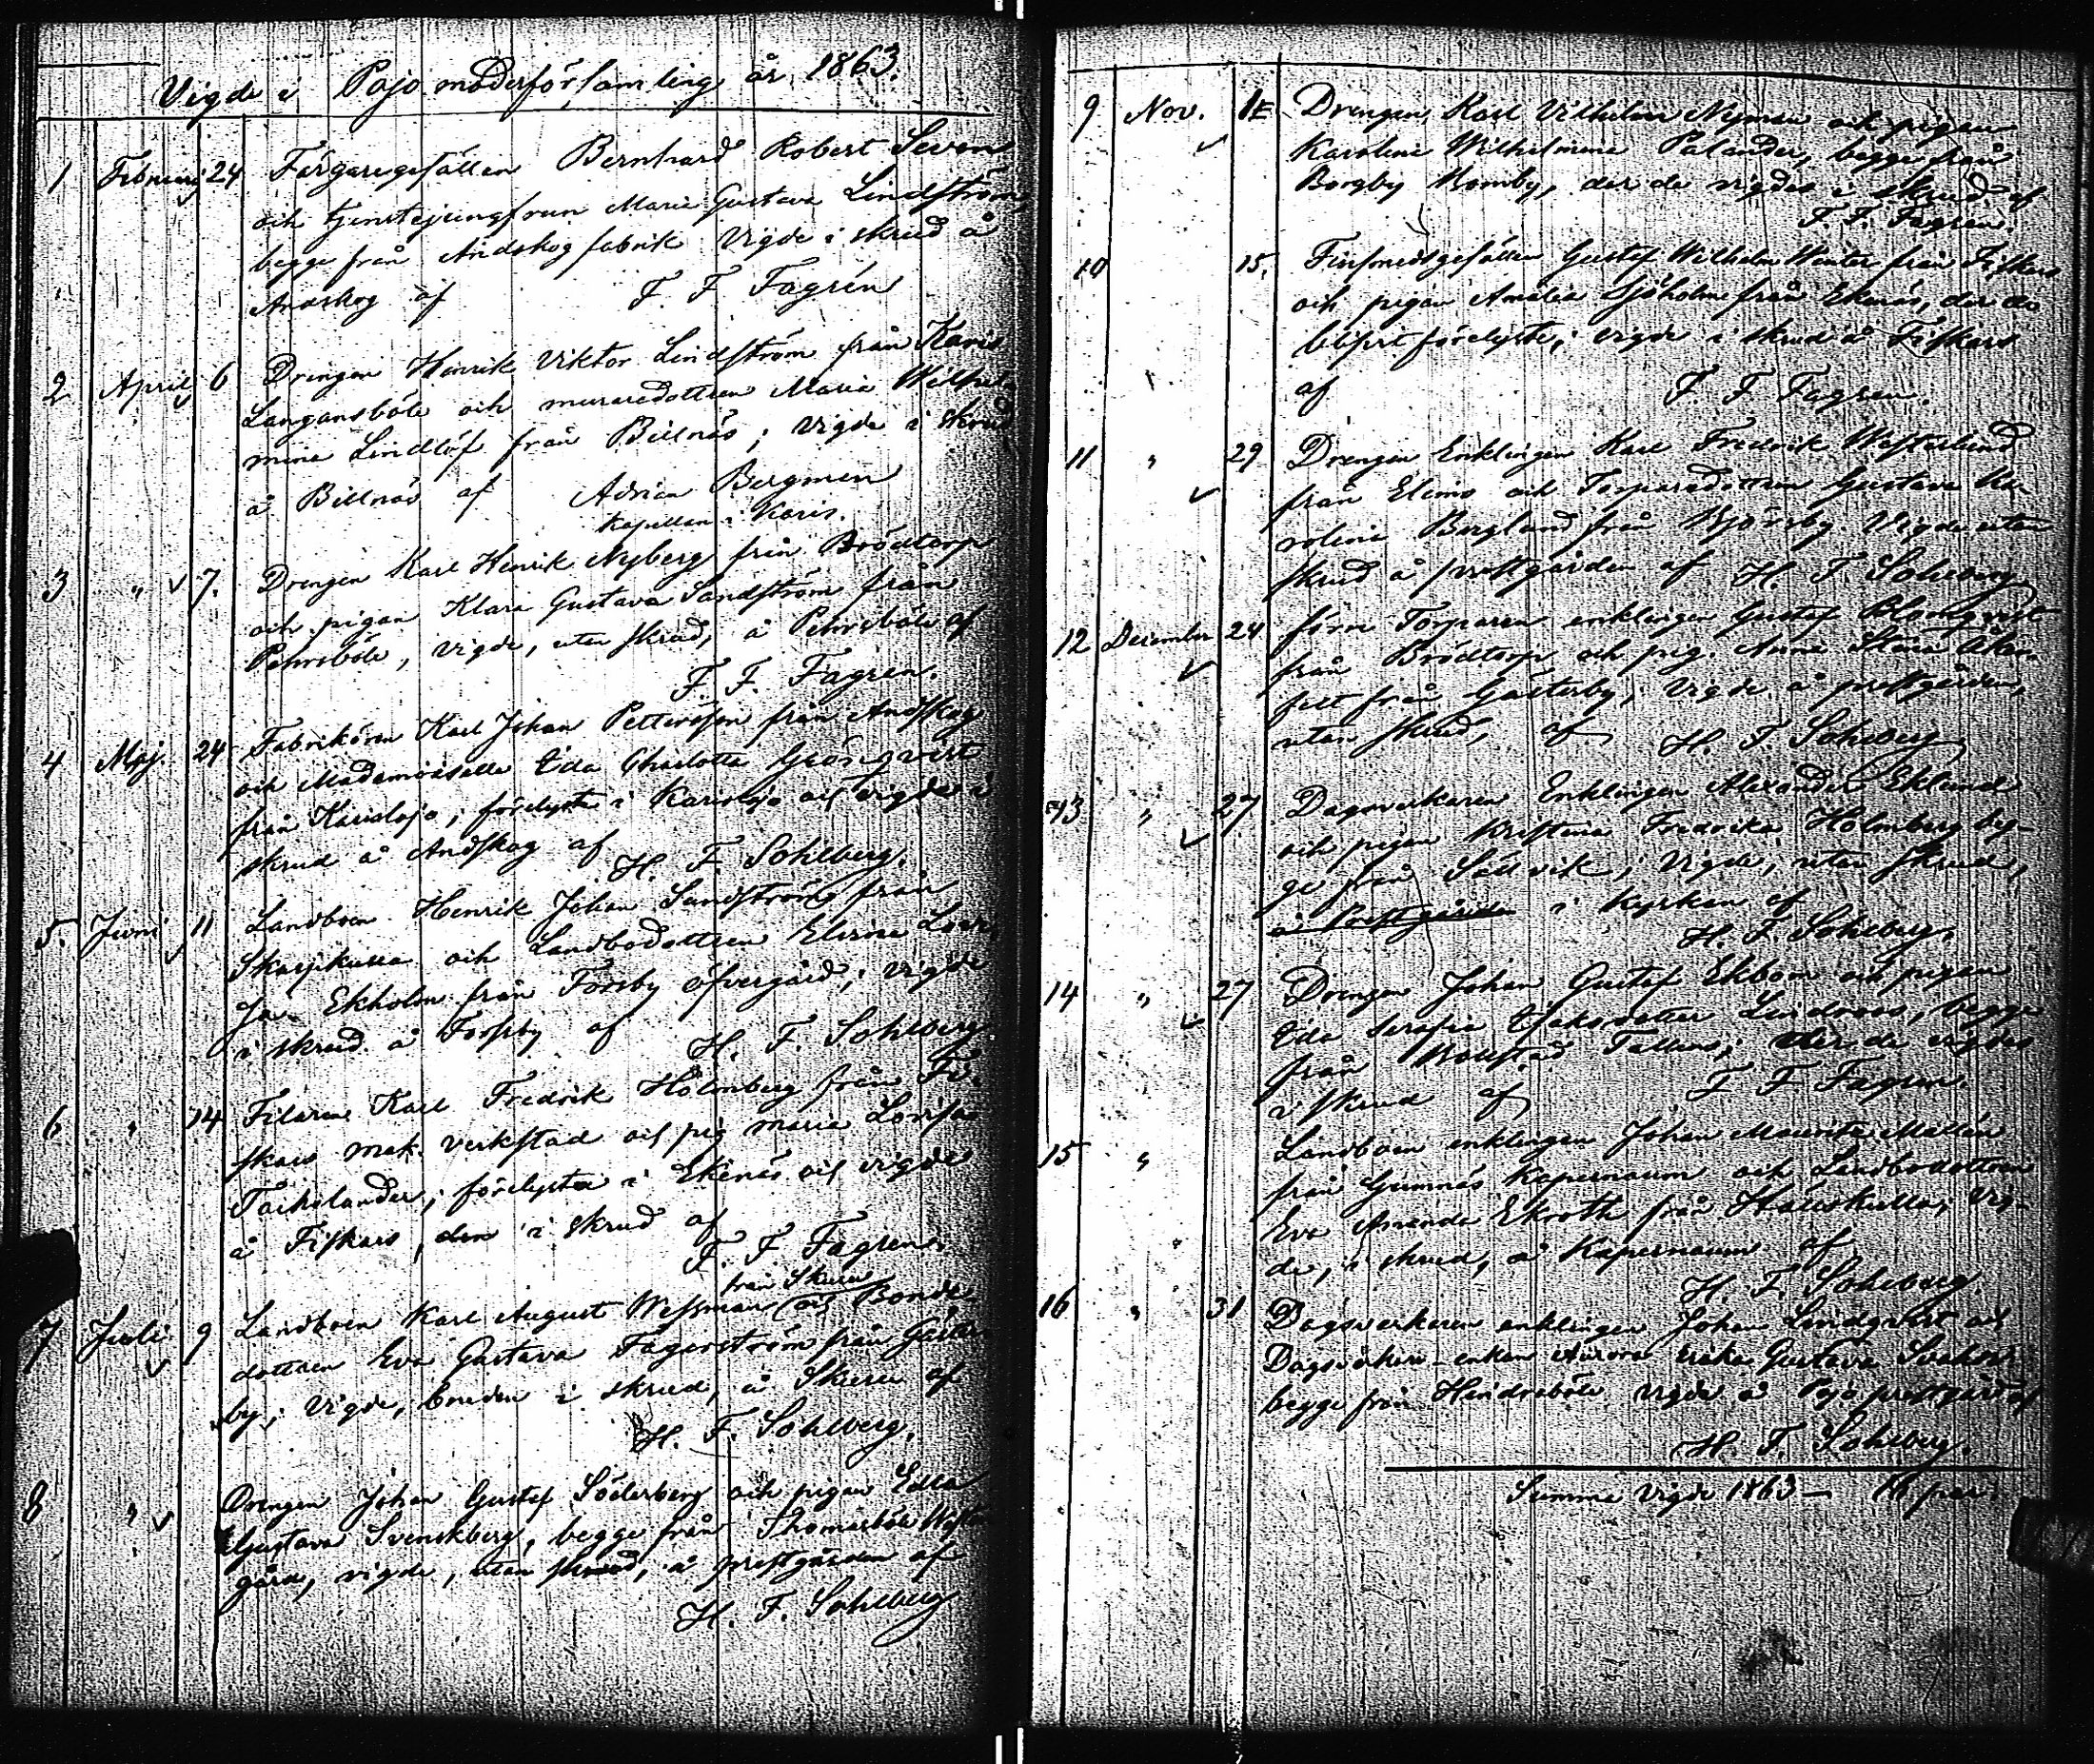 Vigde i Pojo moderförsamling år 1863.
1 Februarij 24 Färgaregesällen Bernhard Robert Sevon
och tjenstejungfrun Maria Gustava Lindström,
begge från Andskog fabrik Vigde i skrud å
Andskog af F. F. Fagrén
2 April 6 Drengen Henrik Viktor Lindström från Karis
Langansböle och muraredottren Maria Wilhel-
mina Lindlöf från Billnäs; Vigde i skrud
å Billnäs af Adrian Bergman
Kapellan i Karis.
3 " 7. Drengen Karl Henrik Nyberg från Brödtorp
och pigan Klara Gustava Sandström från
Pehrsböle, vigde, utan skrud, å Pehrsböle af
F. F. Fagren.
4 Maj. 24 Fabrikören Karl Johan Pettersson från Andskog
och Mademoiselle Eda Charlotta Grönqvist
från Karislojo; förelysta i Karislojo och vigde i
skrud å Andskog af H. F. Sohlberg.
5. Juni 11 Landboen Henrik Johan Sandström från
Skarpkulla och Landbodottren Elvira Lovi-
sa Ekholm från Forsby öfvergård; vigde
i skrud å Forssby af H. F. Sohlberg
6 " 14 Filaren Karl Fredrik Holmberg från Fi-
skars mek. verkstad och pig Maria Lovisa
Tackolander; förelysta i Ekenäs och vigde
å Fiskars, den i skrud af
F. F. Fagren.
från Skuru
7 Juli 9 Landboen Karl August Wessman och Bonde-
dottren Eva Gustava Fagerström från Gäster-
by; Vigde, bruden i skrud, å Skuru af
H. F. Sohlberg.
8 " Drengen Johan Gustaf Söderberg och pigan Edla
Gustava Svenskberg, begge från Thomasböle Wester-
gård, vigde, utan skrud, å prestgården af
H. F. Sohlberg
9 Nov. 1 Drengen Karl Vilhelm Nyman och pigan
Karolina Wilhelmina Palander, begge från
Borgby Komby, der de vigdes i skrud af
F. F. Fagren.
10 15. Finsmedsgesällen Gustaf Wilhelm Winter från Fiskars
och pigan Amalia Sjöholm från Ekenäs, der de
blifvit förelyste; vigde i skrud å Fiskars
af F. F. Fagren.
11 " 29 Drengen Enklingen Karl Fredrik Westerlund
från Elimo och Torparedottren Gustava Ka-
rolina Berglund från Björsby. Vigde utan
skrud å prestgården af H. F. Sohlberg
12 December 24 förre Torparen enklingen Gustaf Blomqvist
från Brödtorp och pig. Anna Stina Åker-
felt från Gästerby; Vigde å prestgården,
utan skrud, af H. F. Sohlberg
13 " 27 Dagsverkaren Enklingen Alexander Eklund
och pigan Kristina Fredrika Holmberg beg-
ge från Sällvik; Vigde, utan skrud,
å Prestgården i Kyrkan af
H. F. Sohlberg.
14 " 27 Drengen Johan Gustaf Ekbom och pigan
Eda Serafia Isaksdotter Lindroos, begge
från Tallmo; der de vigdes
i skrud af F. F. Fagren.
15 " Landboen enklingen Johan Mauritz Malén
från Gumnäs Kapernaum och Landbodottren
Eva Amanda Ekroth från Hällskulla; Vig-
de, i skrud, å Kapernaum af
H. F. Sohlberg.
16 " 31 Dagsverkaren enklingen Johan Lindqvist och
Dagsverkare-enkan Aurora Erika Gustava
begge från Hindrsböle vigde å Pojo prestgård af
H. F. Sohlberg.
Summa Vigde 1863 — 16 par.